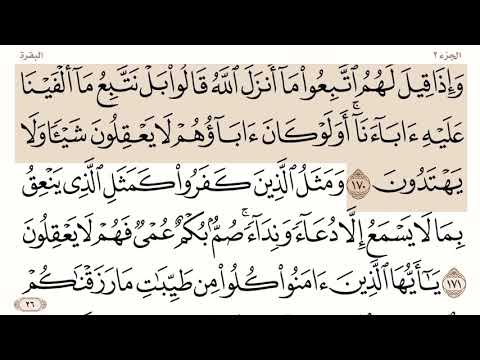 الجزء ٢
البقرة
وَإِذَا قِيلَ لَهُمُ ٱتَّبِعُوا۟ مَآ أَنزَلَ ٱللَّهُ قَالُوا۟ بَلْ نَتَّبِعُ مَآ أَلْفَيْنَا
عَلَيْهِ ءَابَآءَنَآ ۗ أَوَلَوْ كَانَ ءَابَآؤُهُمْ لَا يَعْقِلُونَ شَيْـًٔا وَلَا
يَهْتَدُونَ ١٧٠ وَمَثَلُ ٱلَّذِينَ كَفَرُوا۟ كَمَثَلِ ٱلَّذِى يَنْعِقُ
بِمَا لَا يَسْمَعُ إِلَّا دُعَآءً وَنِدَآءً ۚ صُمٌّۢ بُكْمٌ عُمْىٌ فَهُمْ لَا يَعْقِلُونَ
١٧١ يَـٰٓأَيُّهَا ٱلَّذِينَ ءَامَنُوا۟ كُلُوا۟ مِن طَيِّبَـٰتِ مَا رَزَقْنَـٰكُمْ
٢٦